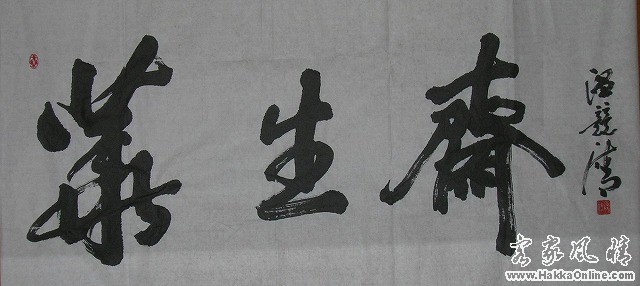 華生齋
客家风情
www.HakkaOnline.com